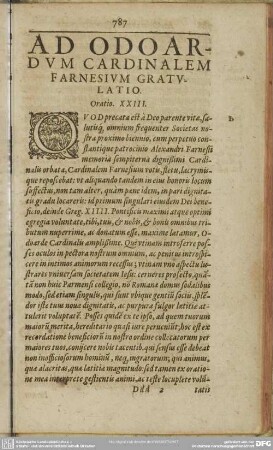 787
AD ODOAR-
DVM CARDINALEM
FARNESIVM GRATV-
LATIO.
Oratio. XXIII.
QVOD precata est à Deo parente vita, sa-
lutisq́, omnium frequenter Societas no-
stra proximo biennio, cum perpetuo con-
stantique patrocinio Alexandri Farnesii
memoria sempiterna dignissimi Cardi-
nalis orbata, Cardinalem Farnesium votis, fletu, lacrymis-
que reposcebat: vt aliquando tandem in eius honoris locum
suffectus, non tam alter, quàm pene idem, in pari dignita-
tis gradu locareris: id primum singulari eiusdem Dei bene-
ficio, deinde Greg. XIIII. Pontificis maximi atque optimi
egregia voluntate, tibi, tuis, & nobis, & bonis omnibus tri-
butum nuperrime, ac donatum esse, maxime latamur, O-
doarde Cardinalis amplissime. Que vtinam introferre pos-
ses oculos in pectora nostrum omnium, ac penitus introspi-
cere in intimos animorum recessus; vtinam vno aspectu lu-
strares vniuersam societatem Iesu: cerneres profecto, quá-
tá non huic Parmensi collegio, nó Romana domui solùm
modo, sed etiam singulis, qui sunt vbique gentiũ sociis, splẽ-
dor iste tuus nouæ dignitatis, ac purpuræ fulgor lætitiæ at-
tulerit voluptatẽ. Posses quidẽ ex te ipso, ad quem tuorum
maiorũ merita, hereditario quasi iure peruenerũt, hoc est ex
recordatione beneficiorũ in nostro ordine collocatorum per
maiores tuos, coniicere nobis tacentib. qui sensus esse debeat
non inofficiosorum hominũ, neq; ingratorum; qui animus,
quæ alacritas, quæ lætitiæ magnitudo: sed tamen ex oratio-
ne mea interprete gestientis animi, ac teste locuplete volũ-
Ddd 2 tatis